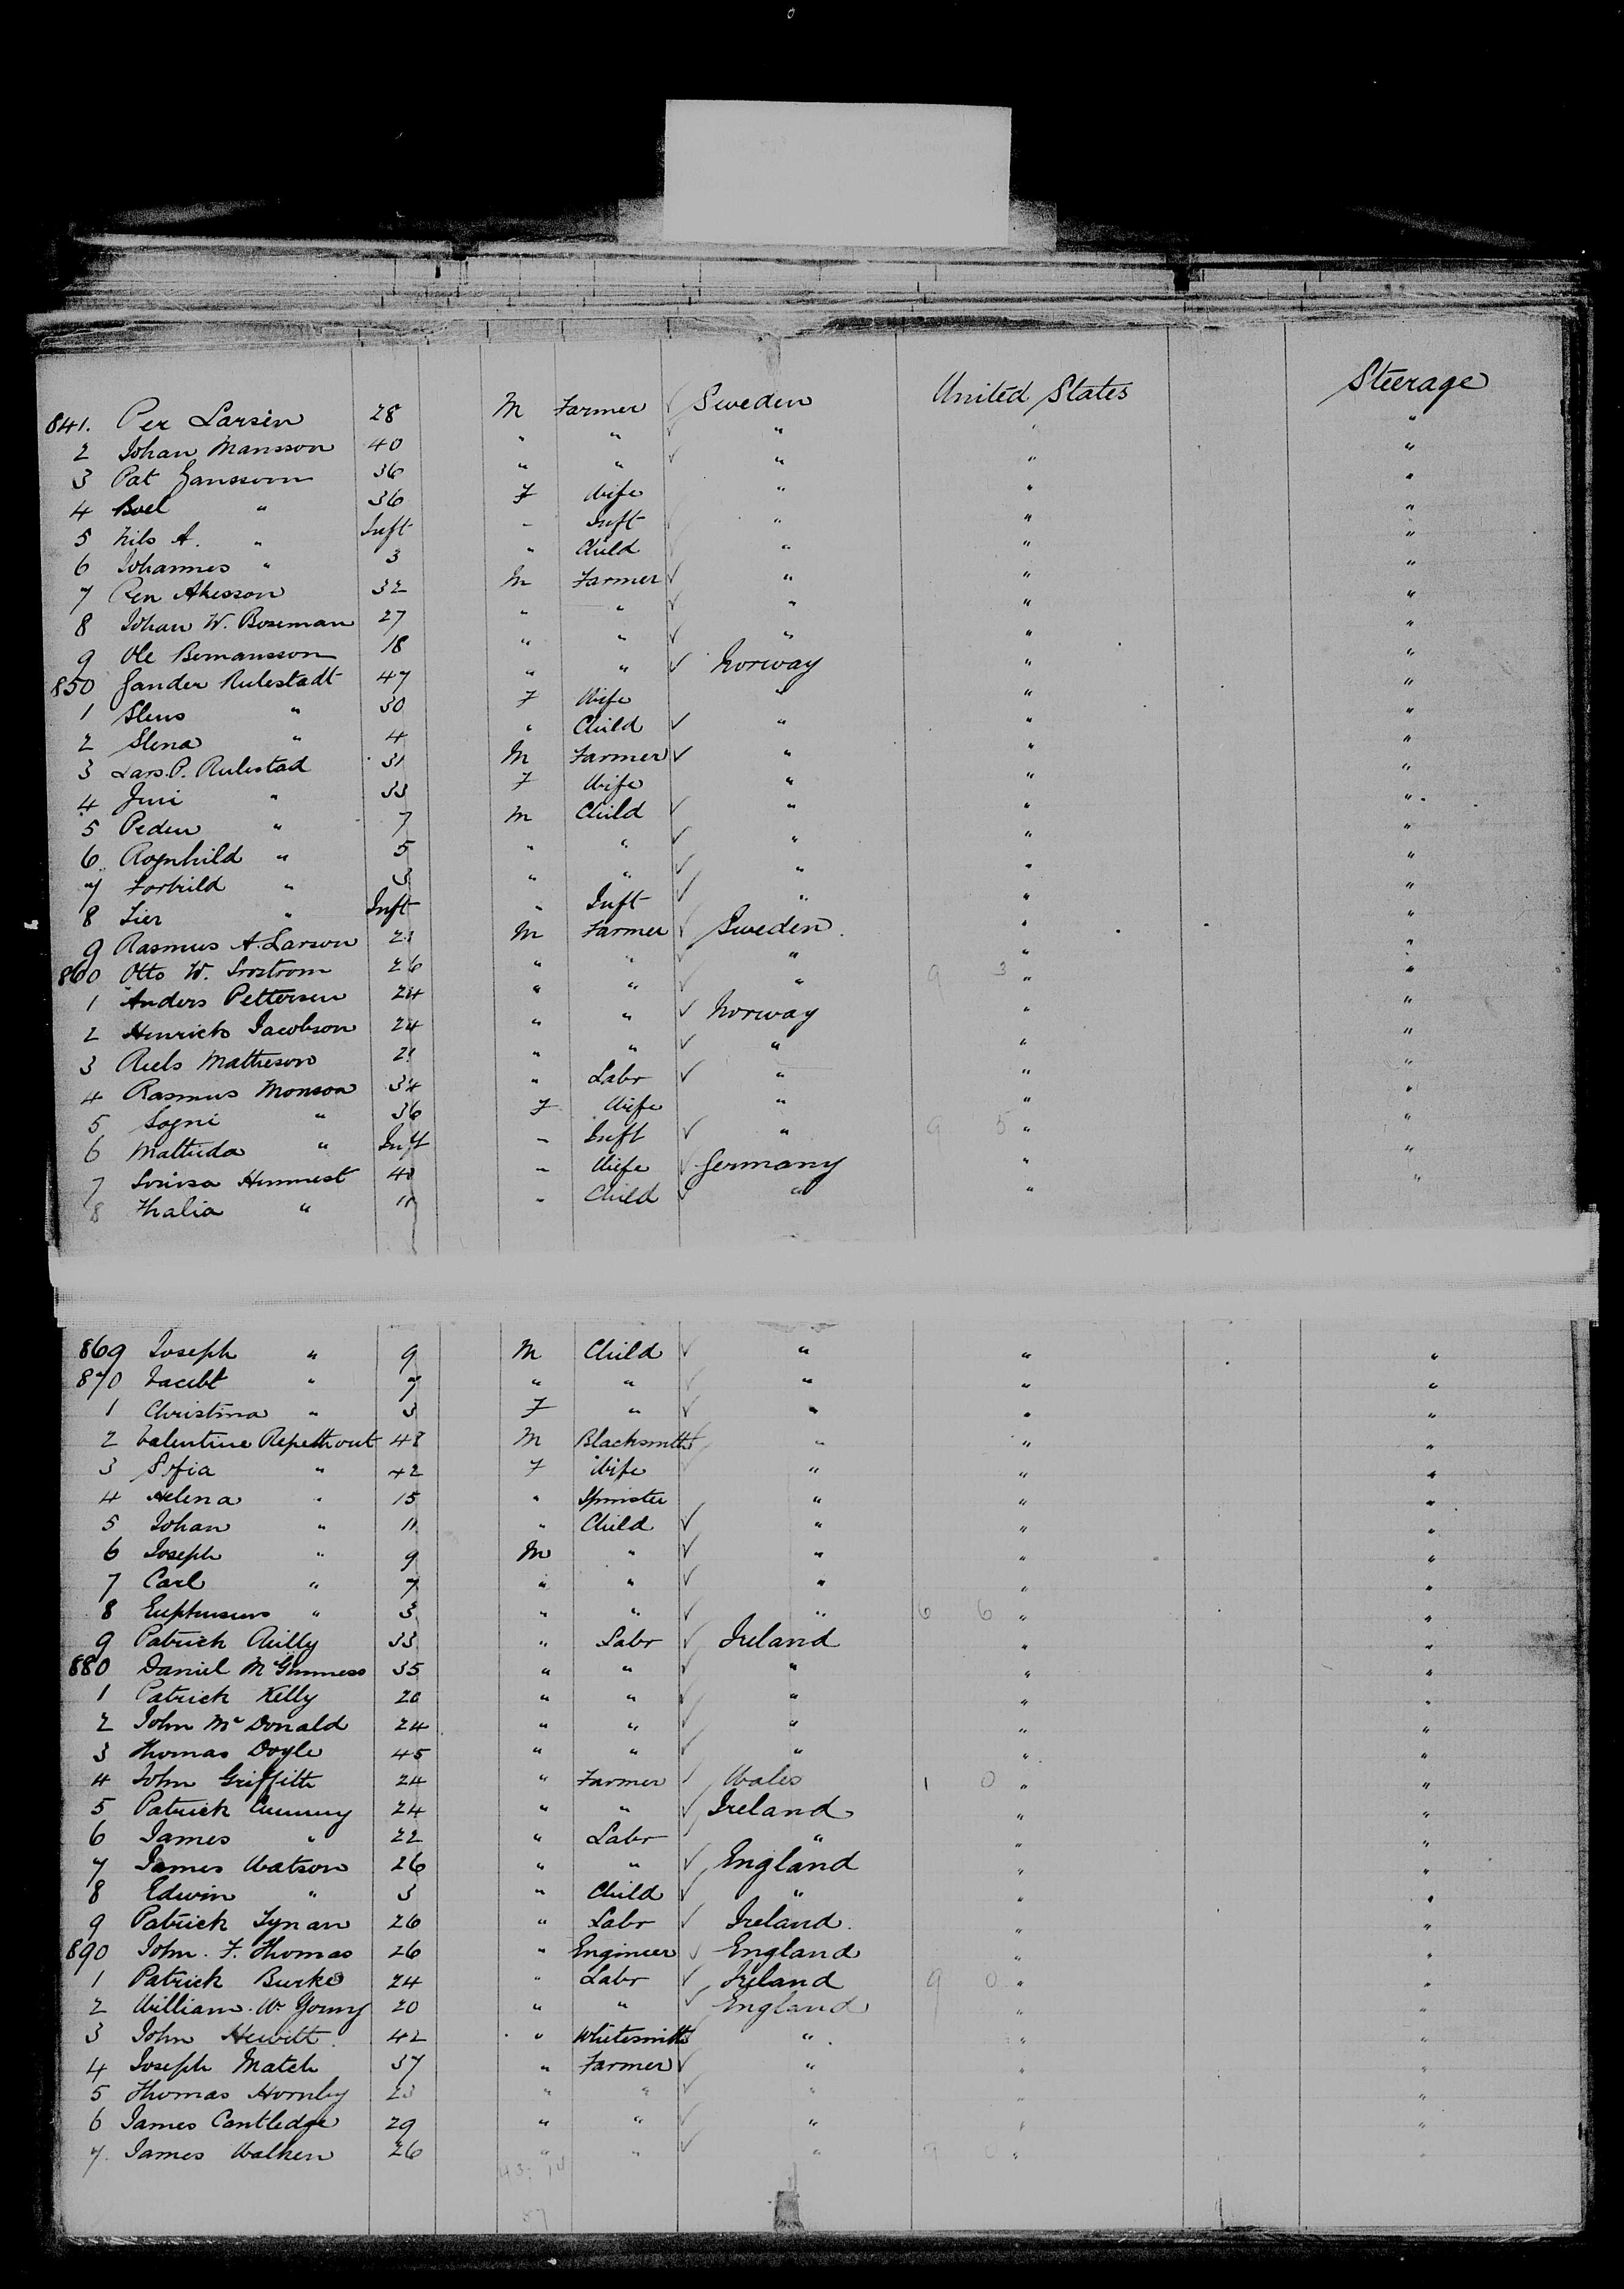 841. Per Larsen 28 M Farmer ✓ Sweden United States Steerage
2 Johan Mansson 40 " " ✓ " " "
3 Pat Jansson 36 " " ✓ " " "
4 Boel " 36 F Wife " " "
5 Nils A. " Inft " Inft ✓ " " "
6 Johannes " 3 " Child ✓ " " "
7 Pen Akesson 32 M Farmer ✓ " " "
8 Johan W. Boseman 27 " " ✓ " " "
9 Ole Bemansson 18 " " ✓ " " "
850 Gander Rulestadt 47 " " ✓ Norway " "
1 " 30 F Wife " " "
2 Slena " 4 " Child ✓ " " "
3 Lars. P. Rulestad 31 M Farmer ✓ " " "
4 Juri " 33 F Wife " " "
5 Peder " 7 M Child ✓ " " "
6 Rognhild " 5 " " ✓ " " "
7 Torbild " 3 " " ✓ " " "
8 " Inft " Inft ✓ " " "
9 Rasmus A. Larson 21 M Farmer ✓ Sweden " "
860 Otto W. 26 " " ✓ " 9 3 " "
1 Anders Pettersen 24 " " ✓ " " "
2 Henrick Jacobson 24 " " ✓ Norway " "
3 Mathieson 21 " " ✓ " " "
4 Rasmus Monson 34 " Labr ✓ " " "
5 Sogni " 36 F Wife " " "
6 " Inft " Inft ✓ " 9 5 " "
7 Louisa Hemmest 40 " Wife ✓ Germany " "
8 Thalia " 11 " Child ✓ " " "
869 Joseph " 9 M Child ✓ " " "
870 " 7 " " ✓ " " "
1 Christina " 3 F " ✓ " " "
2 Valentine Repethout 48 M Blacksmith ✓ " " "
3 Sofia " 42 F Wife " " "
4 Helena " 15 " Spinster " " "
5 Johan " 11 " Child ✓ " " "
6 Joseph " 9 M " ✓ " " "
7 Carl " 7 " " ✓ " " "
8 " 3 " " ✓ " 6 6 " "
9 Patrick Reilly 33 " Labr ✓ Ireland " "
880 Daniel McGinness 35 " " ✓ " " "
1 Patrick Kelly 20 " " ✓ " " "
2 John McDonald 24 " " ✓ " " "
3 Thomas Doyle 45 " " ✓ " " "
4 John Griffith 24 " Farmer ✓ Wales 1 0 " "
5 Patrick 24 " " ✓ Ireland " "
6 James " 22 " Labr ✓ " " "
7 James Watson 26 " " ✓ England " "
8 Edwin " 3 " Child ✓ " " "
9 Patrick Tynan 26 " Labr ✓ Ireland " "
890 John. F. Thomas 26 " Engineer ✓ England " "
1 Patrick Burke 24 " Labr ✓ Ireland 9 0 " "
2 William. W. Young 20 " " ✓ England " "
3 John Hewitt 42 " Whitesmith " " "
4 Joseph Match 37 " Farmer ✓ " " "
5 Thomas Hornby 23 " " ✓ " " "
6 James Cantledge 29 " " ✓ " " "
7. James Walken 26 " " ✓ " 9 0 " "